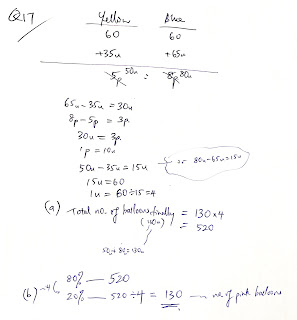 Q17/
Yellow Blue
60 60
+35u +65u
5p 50u = 8p 80u
65u - 35u = 30u
8p - 5p = 3p
30u = 3p
1p = 10u
50u - 35u = 15u or 80u - 65u = 15u
15u = 60
1u = 60 ÷ 15 = 4
(a) Total no. of balloons finally = 130 × 4
(130u) = 520
50u + 80u = 130u
(b) ÷4 80% — 520
20% — 520 ÷ 4 = 130 — no. of pink balloons